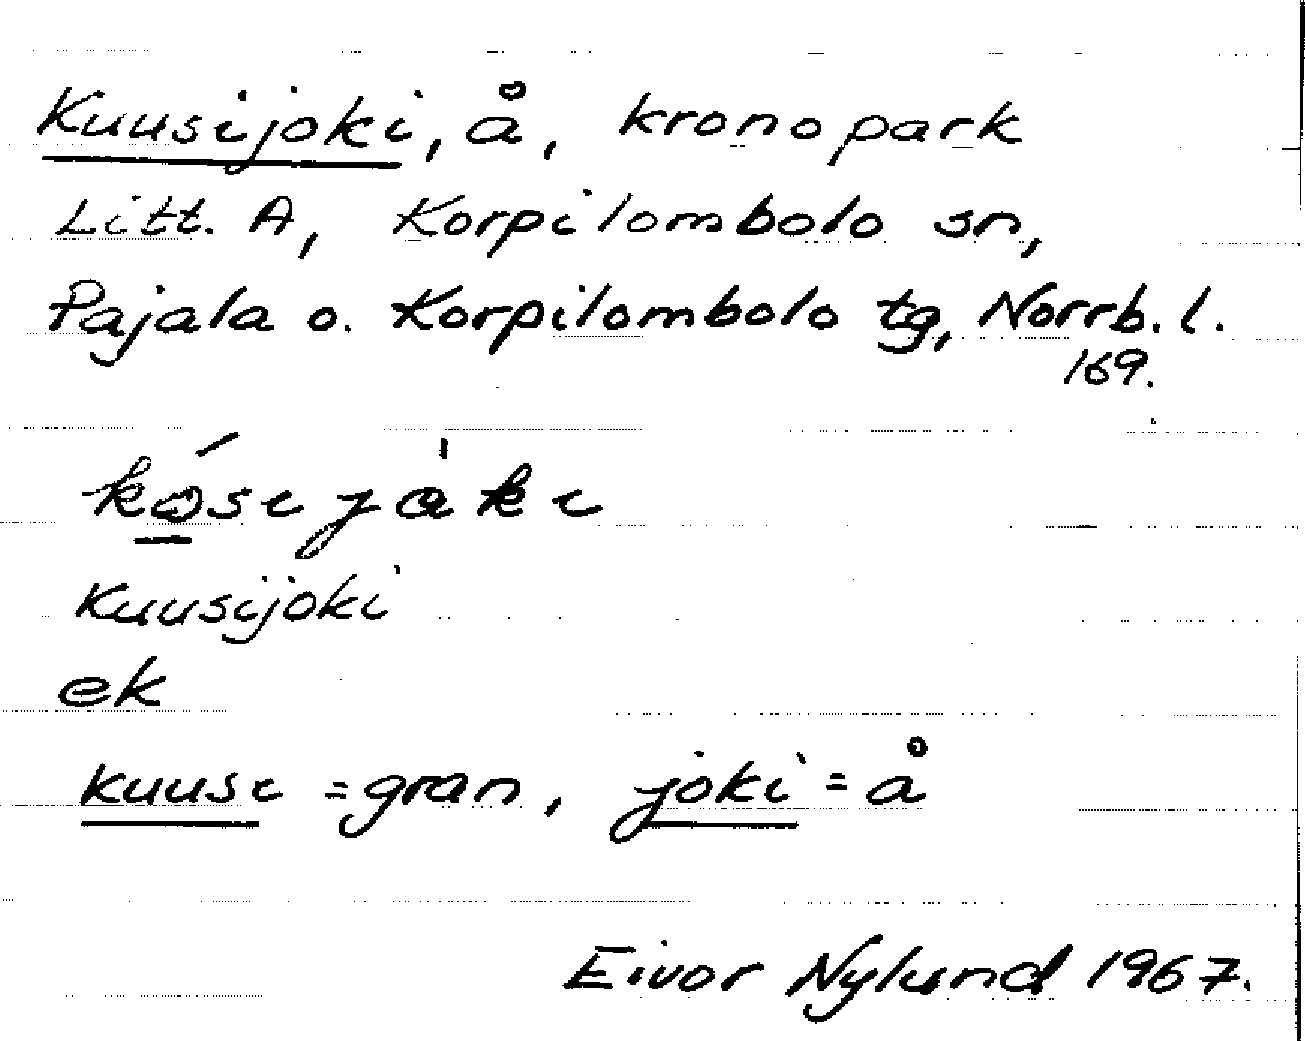 Kuusijoki, å, kronopark
Litt. A, Korpilombolo sn,
Pajala o. Korpilombolo tg, Norrb. l.
169.
Kuusijoki
ek
kuusi = gran, joki = å
Eivor Nylund 1967.